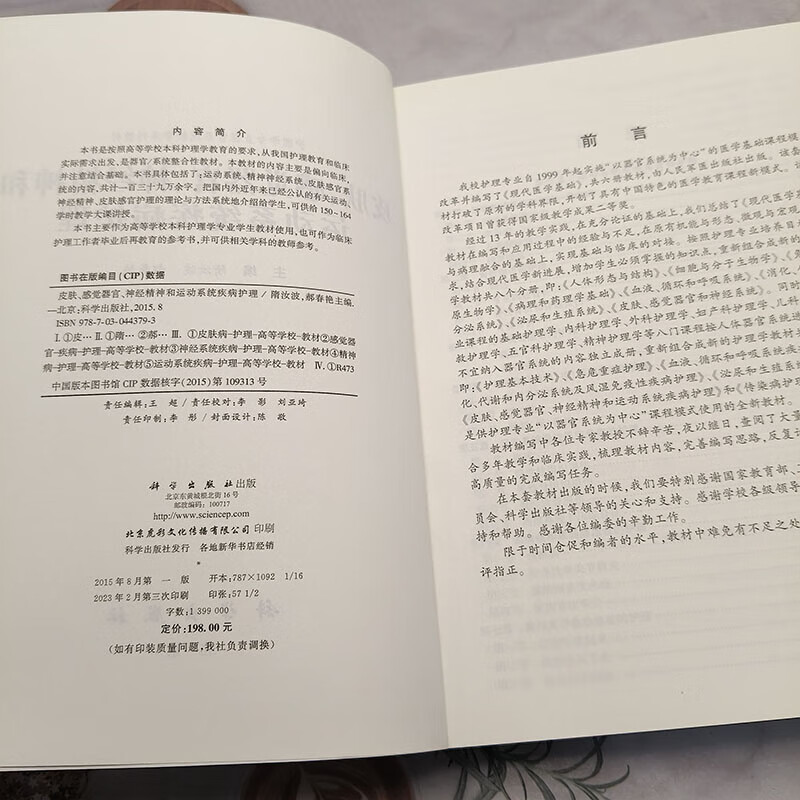 内 容 简 介
本书是按照高等学校本科护理学教育的要求，从我国护理教育和临床
实际需求出发，是器官/系统整合性教材。本教材的内容主要是偏向临床，
并注意结合基础。本书具体包括了：运动系统、精神神经系统、皮肤感官系
统的内容，共计一百三十九万余字。把国内外近年来已经公认的有关运动、
神经精神、皮肤感官护理的理论与方法系统地介绍给学生，可供给 150~164
学时教学大课讲授。
本书主要作为高等学校本科护理学专业学生教材使用，也可作为临床
护理工作者毕业后再教育的参考书，并可供相关学科的教师参考。
图书在版编目（CIP）数据
皮肤、感觉器官、神经精神和运动系统疾病护理 / 隋汝波，郝春艳主编.
—北京：科学出版社，2015.8
ISBN 978-7-03-044379-3
Ⅰ.①皮… Ⅱ.①隋… ②郝… Ⅲ.①皮肤病-护理-高等学校-教材②感觉
器官-疾病-护理-高等学校-教材③神经系统疾病-护理-高等学校-教材④精神
病-护理-高等学校-教材⑤运动系统疾病-护理-高等学校-教材 Ⅳ.①R473
中国版本图书馆 CIP 数据核字（2015）第 109313 号
责任编辑：王 超 / 责任校对：李 影 刘亚琦
责任印制：李 彤 / 封面设计：陈 敬
科学出版社 出版
北京东黄城根北街 16 号
邮政编码：100717
http://www.sciencep.com
北京虎彩文化传播有限公司 印刷
科学出版社发行 各地新华书店经销
*
2015 年 8 月第 一 版 开本：787×1092 1/16
2023 年 2 月第三次印刷 印张：57 1/2
字数：1 399 000
定价：198.00 元
（如有印装质量问题，我社负责调换）
前 言
我校护理专业自 1999 年起实施“以器官系统为中心”的医学基础课程模
改革并编写了《现代医学基础》，共六册教材，由人民军医出版社出版。该套
材打破了原有的学科界限，开创了具有中国特色的医学教育课程新模式。该
改革项目曾获得国家级教学成果二等奖。
经过 13 年的教学实践，在充分论证的基础上，我们总结了《现代医学基
教材在编写和应用过程中的经验与不足，在原有机能与形态、微观与宏观
与病理融合的基础上，实现基础与临床的对接。按照护理专业培养目
求，结合现代医学新进展，增加学生必须掌握的知识点，重新组合成新的
学教材共八个分册，即：《人体形态与结构》、《细胞与分子生物学》、《免
原生物学》、《病理和药理学基础》、《血液、循环和呼吸系统》、《消化、
分泌系统》、《泌尿和生殖系统》、《皮肤、感觉器官和神经系统》。同时
业课程的基础护理学、内科护理学、外科护理学、妇产科护理学、儿科
救护理学、五官科护理学、精神护理学等八门课程按人体器官系统进
不宜纳入器官系统的内容独立成册，重新组合成新的护理学教材共
即：《护理基本技术》、《急危重症护理》、《血液、循环和呼吸系统疾
化、代谢和内分泌系统及风湿免疫性疾病护理》、《泌尿和生殖系
《皮肤、感觉器官、神经精神和运动系统疾病护理》和《传染病护理
是供护理专业“以器官系统为中心”课程模式使用的全新教材。
教材编写中各位专家教授不辞辛苦，夜以继日，查阅了大量
合多年教学和临床实践，梳理教材内容，完善编写思路，反复
高质量的完成编写任务。
在本套教材出版的时候，我们要特别感谢国家教育部、
员会、科学出版社等领导的关心和支持。感谢学校各级领导
持和帮助。感谢各位编委的辛勤工作。
限于时间仓促和编者的水平，教材中难免有不足之处
评指正。